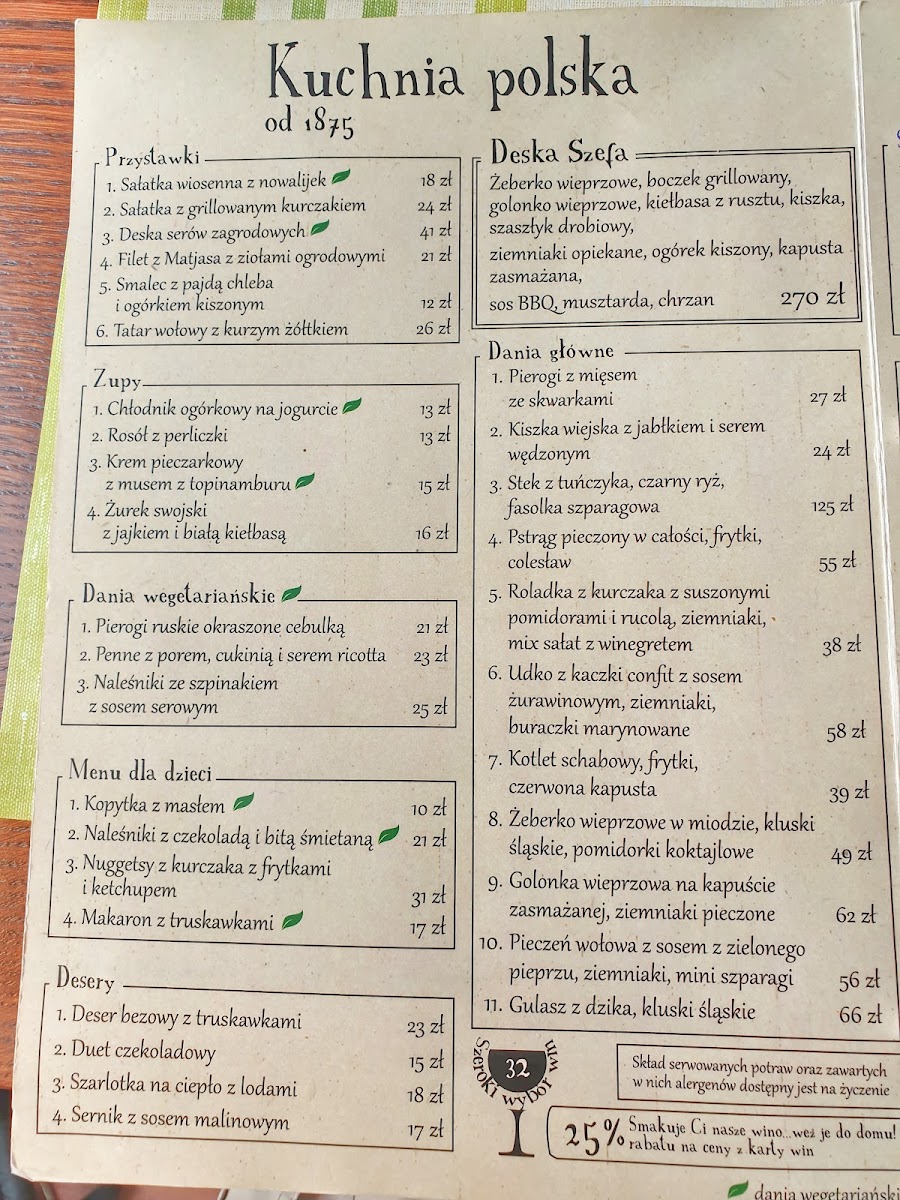 Kuchnia polska
od 1875
Przystawki
1. Sałatka wiosenna z nowalijek 18 zł
2. Sałatka z grillowanym kurczakiem 24 zł
3. Deska serów zagrodowych 41 zł
4. Filet z Matjasa z ziołami ogrodowymi 21 zł
5. Smalec z pajdą chleba
i ogórkiem kiszonym 12 zł
6. Tatar wołowy z kurzym żółtkiem 26 zł
Zupy
1. Chłodnik ogórkowy na jogurcie 13 zł
2. Rosół z perliczki 13 zł
3. Krem pieczarkowy
z musem z topinamburu 15 zł
4. Żurek swojski
z jajkiem i białą kiełbasą 16 zł
Dania wegetariańskie
1. Pierogi ruskie okraszone cebulką 21 zł
2. Penne z porem, cukinią i serem ricotta 23 zł
3. Naleśniki ze szpinakiem
z sosem serowym 25 zł
Menu dla dzieci
1. Kopytka z masłem 10 zł
2. Naleśniki z czekoladą i bitą śmietaną 21 zł
3. Nuggetsy z kurczaka z frytkami
i ketchupem 31 zł
4. Makaron z truskawkami 17 zł
Desery
1. Deser bezowy z truskawkami 23 zł
2. Duet czekoladowy 15 zł
3. Szarlotka na ciepło z lodami 18 zł
4. Sernik z sosem malinowym 17 zł
Deska Szefa
Żeberko wieprzowe, boczek grillowany,
golonko wieprzowe, kiełbasa z rusztu, kiszka,
szaszłyk drobiowy,
ziemniaki opiekane, ogórek kiszony, kapusta
zasmażana,
sos BBQ, musztarda, chrzan 270 zł
Dania główne
1. Pierogi z mięsem
ze skwarkami 27 zł
2. Kiszka wiejska z jabłkiem i serem
wędzonym 24 zł
3. Stek z tuńczyka, czarny ryż,
fasolka szparagowa 125 zł
4. Pstrąg pieczony w całości, frytki,
colesław 55 zł
5. Roladka z kurczaka z suszonymi
pomidorami i rucolą, ziemniaki,
mix sałat z winegretem 38 zł
6. Udko z kaczki confit z sosem
żurawinowym, ziemniaki,
buraczki marynowane 58 zł
7. Kotlet schabowy, frytki,
czerwona kapusta 39 zł
8. Żeberko wieprzowe w miodzie, kluski
śląskie, pomidorki koktajlowe 49 zł
9. Golonka wieprzowa na kapuście
zasmażanej, ziemniaki pieczone 62 zł
10. Pieczeń wołowa z sosem z zielonego
pieprzu, ziemniaki, mini szparagi 56 zł
11. Gulasz z dzika, kluski śląskie 66 zł
32
Szeroki wybór win
Skład serwowanych potraw oraz zawartych
w nich alergenów dostępny jest na życzenie
25% Smakuje Ci nasze wino...weź je do domu!
rabatu na ceny z karty win
dania wegetariański